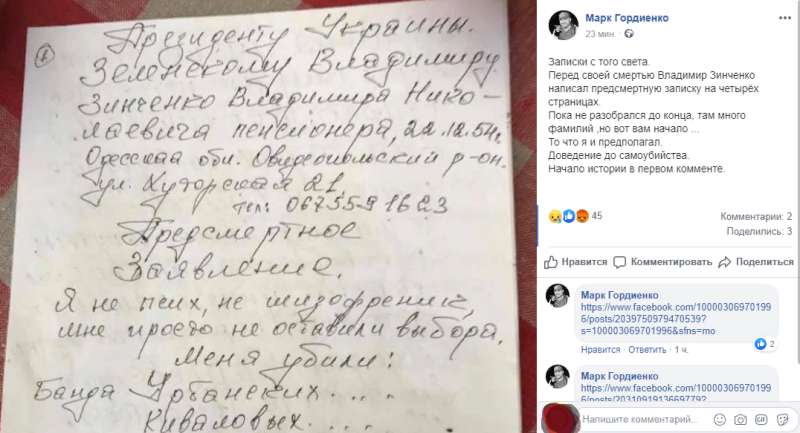 1
Президенту Украины.
Зеленскому Владимиру
Зинченко Владимира Нико-
лаевича пенсионера, 22.12.54г.
Одесская обл. Овидеопольский р-он.
ул. Хуторская 21,
тел: 067 559 16 23
Предсмертное
Заявление.
Я не псих, не шизофреник,
мне просто не оставили выбора.
Меня убили:
Банда Урбанских....
Киваловых....
Марк Гордиенко
23 мин. ·
Записки с того света.
Перед своей смертью Владимир Зинченко
написал предсмертную записку на четырёх
страницах.
Пока не разобрался до конца, там много
фамилий ,но вот вам начало ...
То что я и предполагал.
Доведение до самоубийства.
Начало истории в первом комменте.
45
Комментарии: 2
Поделились: 3
Нравится Комментировать Поделиться
Марк Гордиенко
https://www.facebook.com/10000306970199
6/posts/2039750979470539?
s=100003069701996&sfns=mo
2
Нравится · Ответить · 1 ч.
Марк Гордиенко
https://www.facebook.com/10000306970199
6/posts/2031091913669779?
Напишите комментарий...
GIF